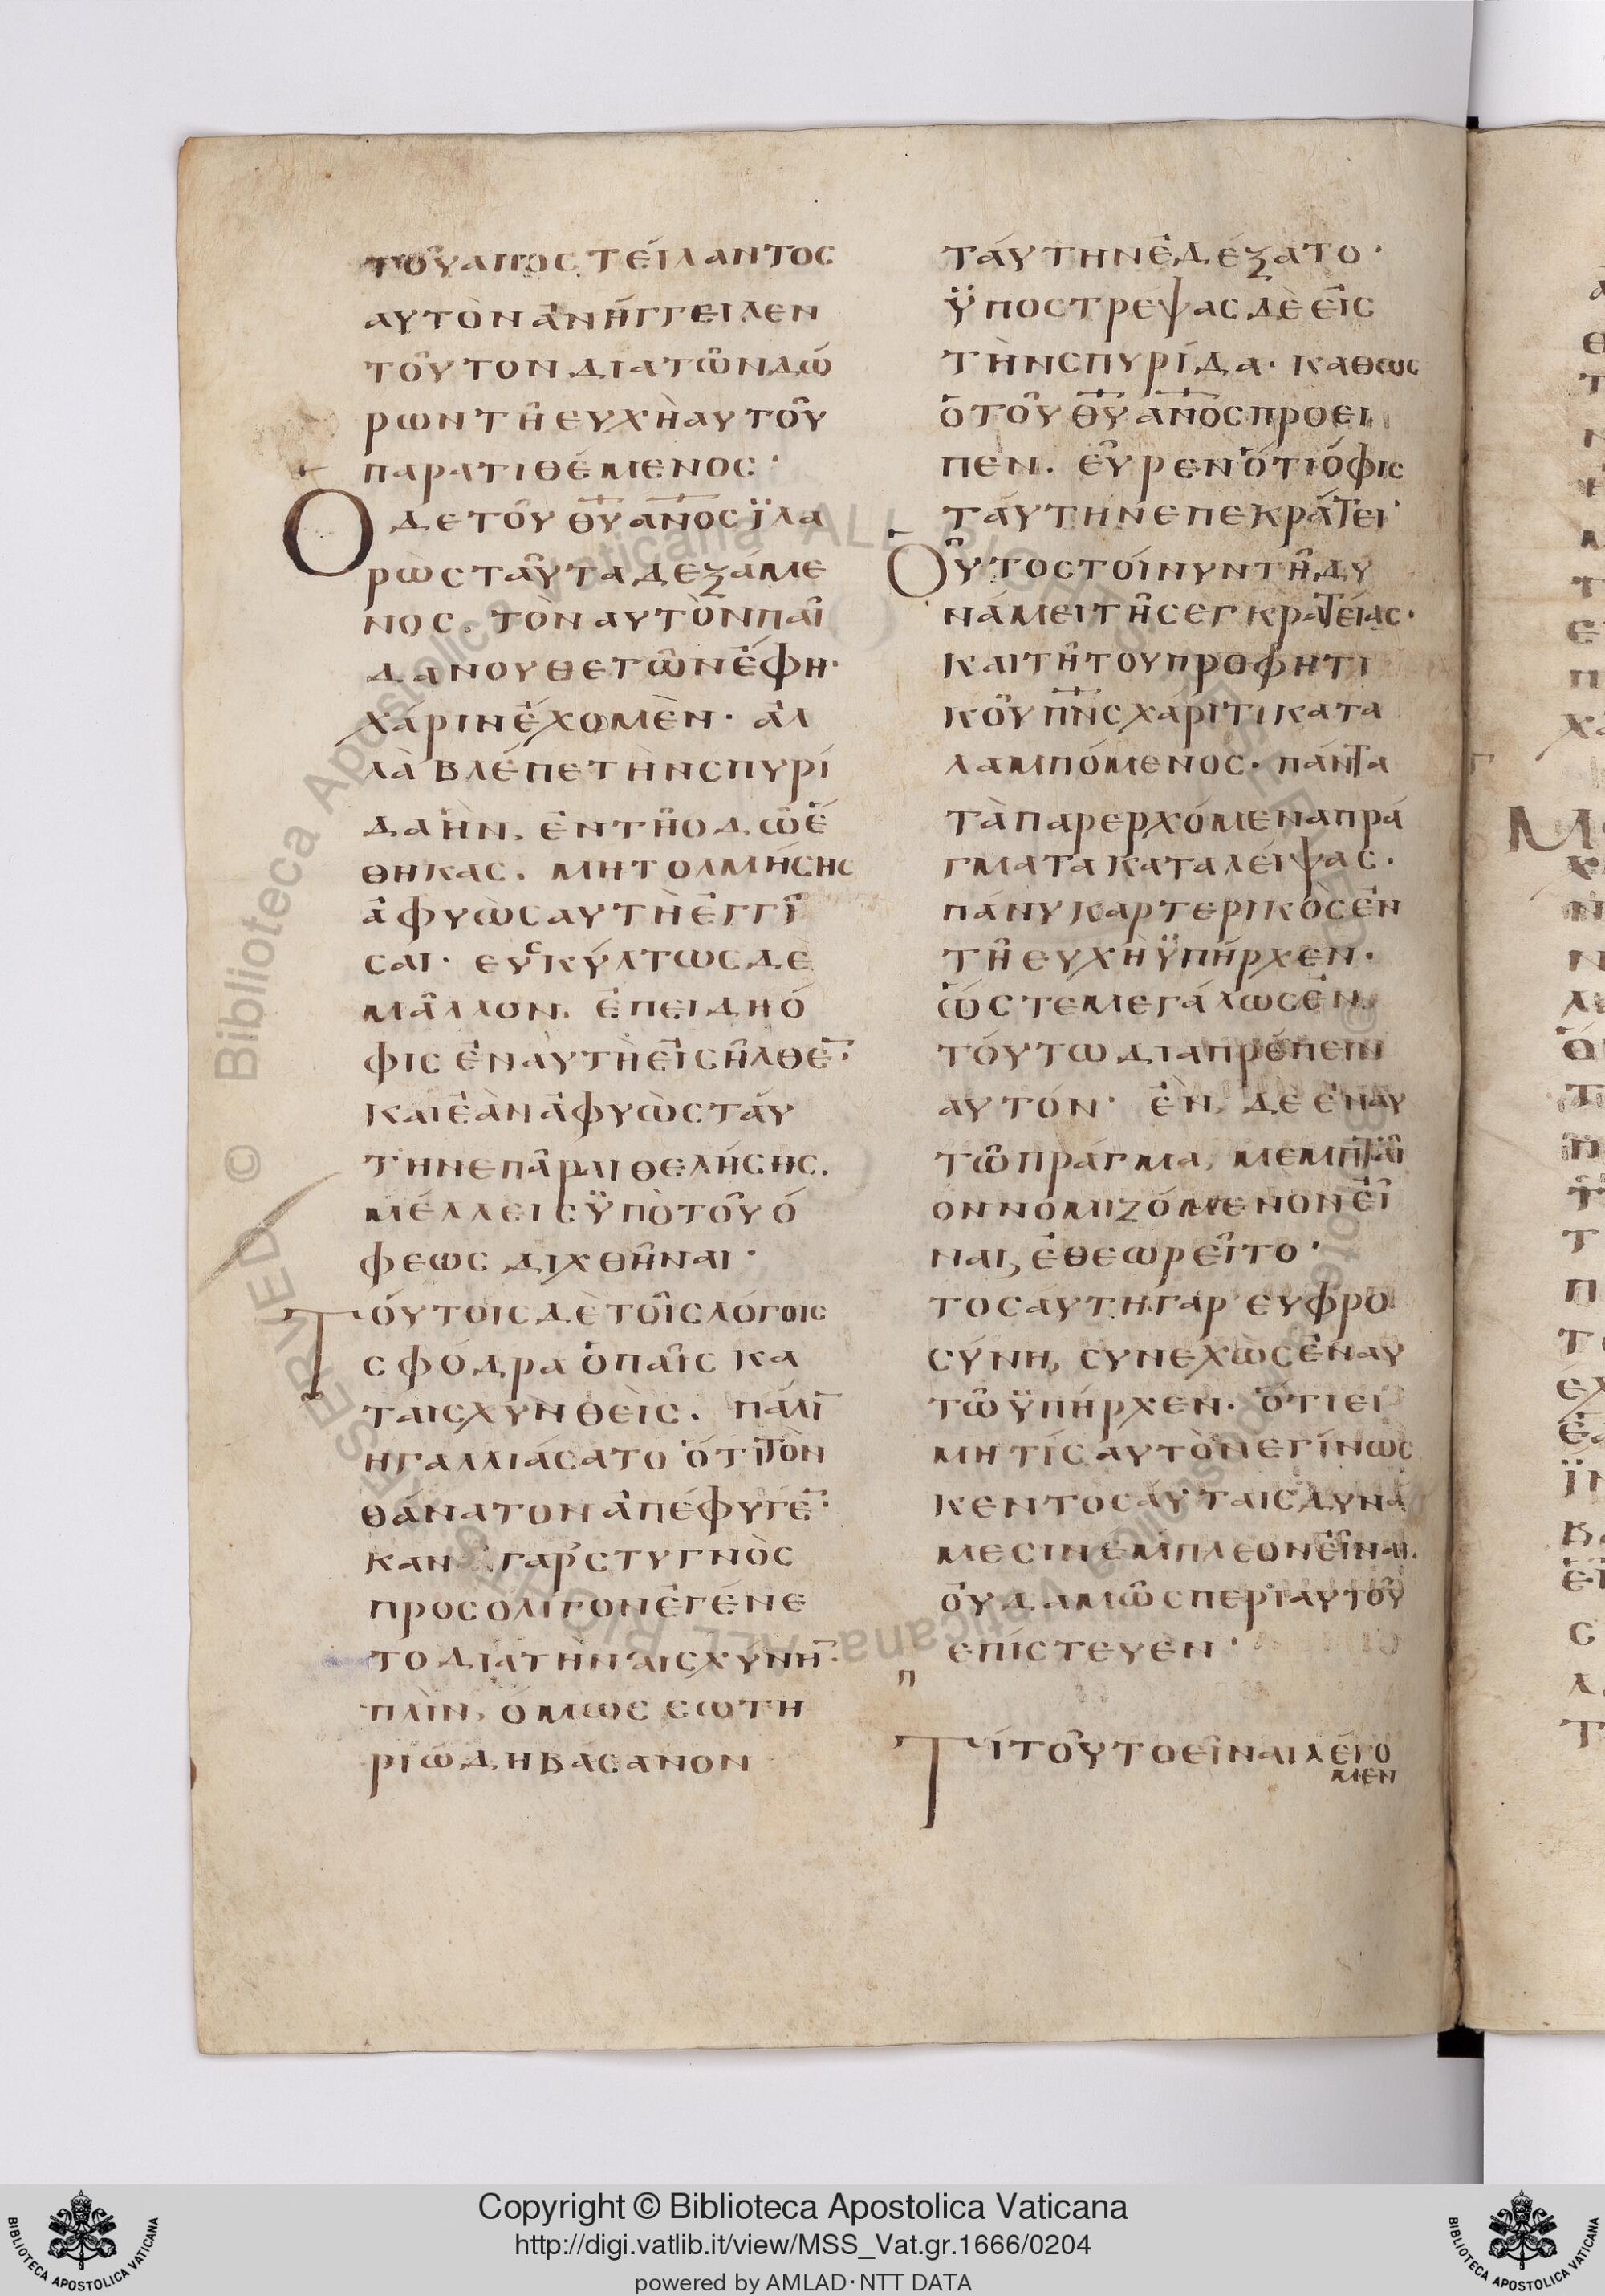 τοῦ ἀποστείλαντος
αυτὸν ἀνήγγειλεν
τοῦτον διατῶν δώ
ρων τῆ ευχῆ αυτοῦ
παρατιθέμενος·
Ὁ δε τοῦ θ̅υ̅ α̅ν̅ο̅ς ϊλα
ρὼς ταῦτα δεξάμε
νος. τὸν αυτὸν παῖ
δα νουθετῶν ἔφη·
χάριν ἔχομὲν· ἀλ
λὰ βλέπε τὴν σπυρί
δα ἣν, ἐν τῆ οδῶ ἔ
θηκας. μη τολμήσης
ἀφυὼς αυτῆ ἐγγῖ
σαι· ευσκύλτως δὲ
μᾶλλον. ἐπειδὴ ὁ
φις ἐν αυτῆ εἰσῆλθε̅·
και ἐὰν ἀφυὼς τάυ
την επᾶραι θελήσης.
μέλλεις ϋπὸ τοῦ ό
φεως διχθῆναι·
Τόυτοις δὲ τοῖς λόγοις
σφόδρα ὁ παῖς κα
ταισχυνθεὶς. πάλι̅
ηγαλλιάσατο ὅτι τὸν
θάνατον ἀπέφυγε̅·
καν γαρ στυγνὸς
προσολίγον ἐγένε
το διατὴν αισχύνη̅·
πλὶν, όμως σωτη
ριώδη βάσανον
τάυτην ἐδέξατο·
ϋποστρέψας δὲ εἰς
τὴν σπυρίδα· καθως
ὁ τοῦ θ̅υ̅ α̅ν̅ο̅ς προει
πεν. εὗρεν ὅτι όφις
τάυτην επεκράτει·
Οὗτος τοίνυν τῆ δυ
νάμει τῆς εγκρατείας·
και τῆ του προφητι
κοῦ π̅ν̅ς χάριτι κατα
λαμπόμενος· πάντα
τὰ παρερχόμενα πρά
γματα καταλείψας.
πάνυ καρτερικὸς ἐν
τῆ ευχῆ ϋπήρχεν·
ὥστε μεγάλως ἐν
τόυτω διαπρέπειν
αυτόν· ἓν, δὲ ἐν αυ
τῶ πράγμα, μεμπταῖ
ον νομιζόμενον εἶ
ναι, ἐθεωρεῖτο·
τοσαυτη γάρ ευφρο
σύνη, συνεχὼς ἐν αυ
τῶ ϋπήρχεν. ὅτι ει
μη τίς αυτὸν εγίνωσ
κεν τοσάυταις δυνά
μεσιν εμπλεον εἶναι.
οὐδαμῶς περι αυτοῦ
επίστευεν·
π
Τί τοῦτο εἶναι λέγο
μεν
Copyright © Biblioteca Apostolica Vaticana
http://digi.vatlib.it/view/MSS_Vat.gr.1666/0204
powered by AMLAD·NTT DATA